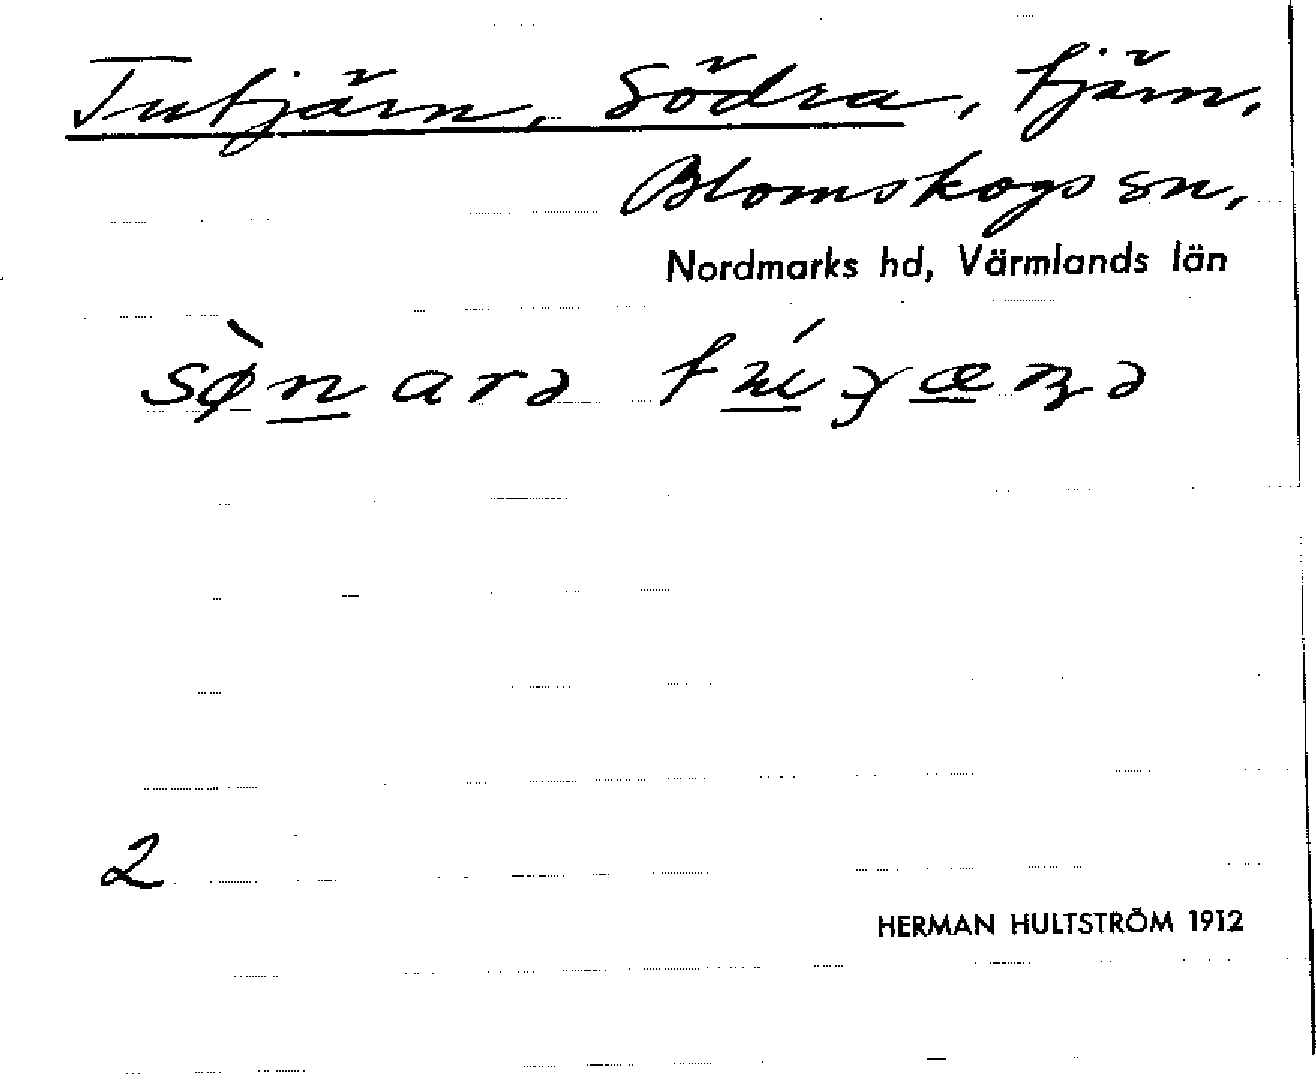 Tutjärn, Södra, tjärn,
Blomskogs sn,
Nordmarks hd, Värmlands län
2
HERMAN HULTSTRÖM 1912